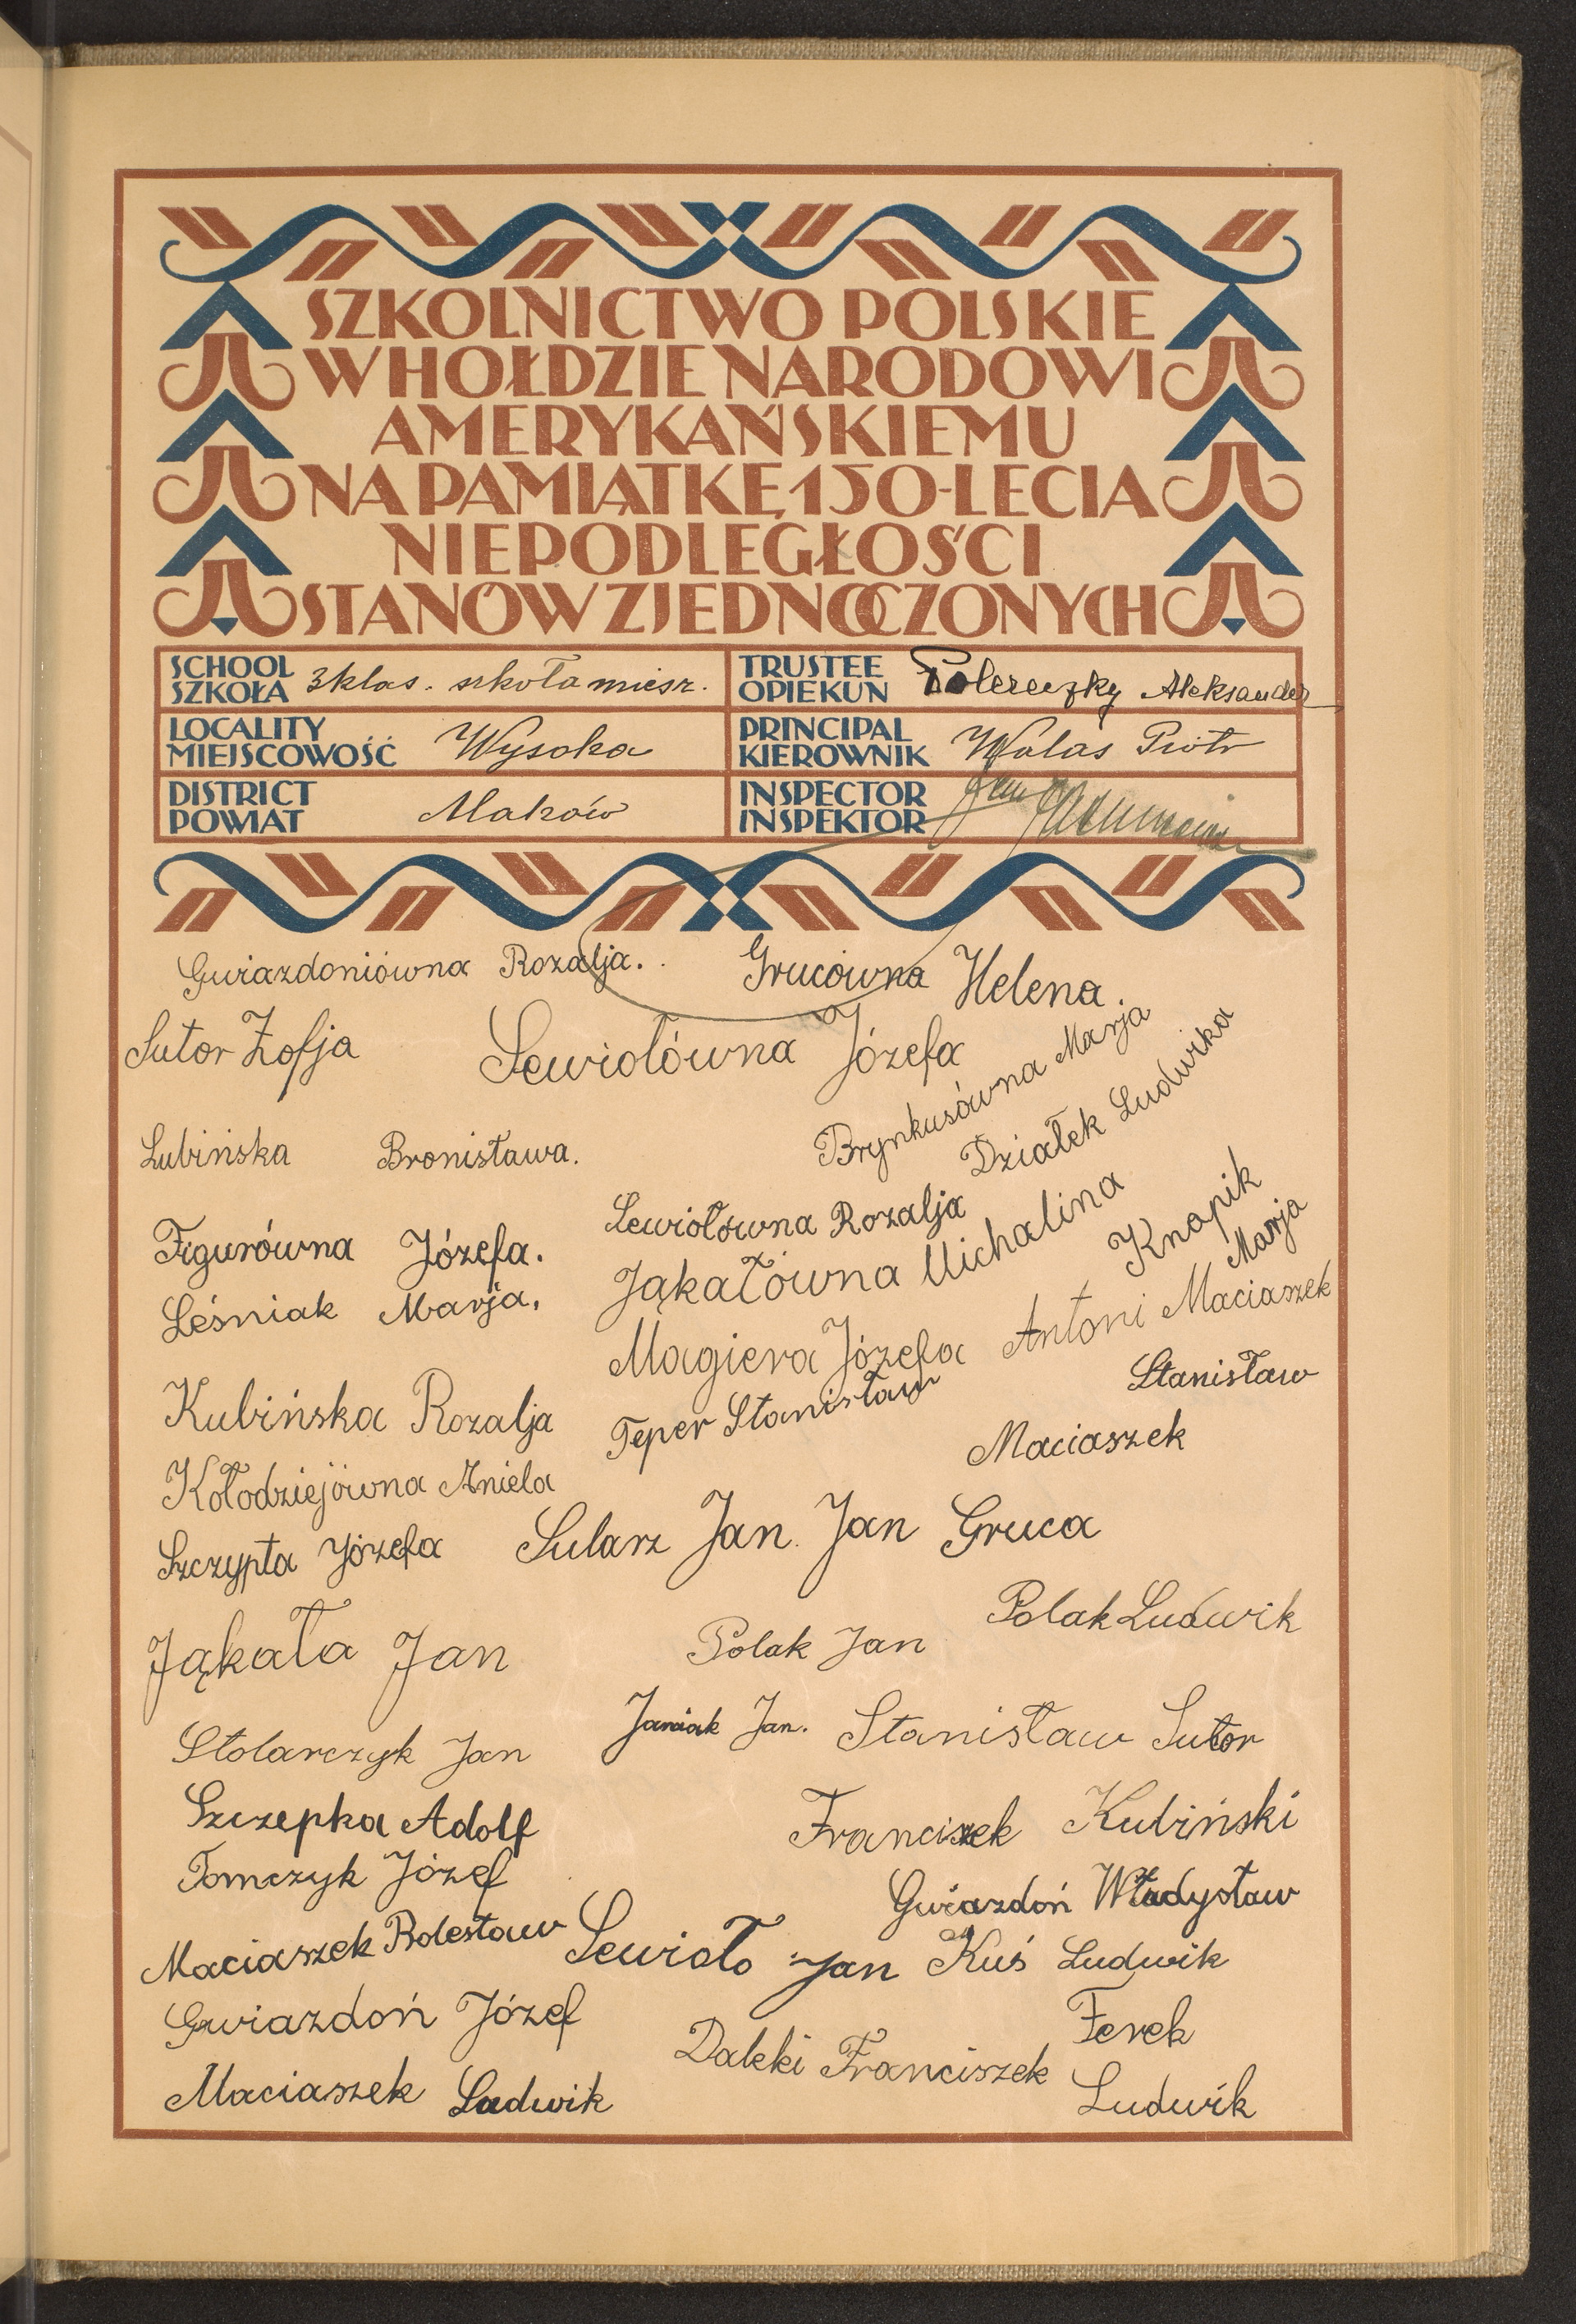 SZKOLNICTWO POLSKIE
W HOŁDZIE NARODOWI
AMERYKAŃSKIEMU
NA PAMIĄTKĘ 150-LECIA
NIEPODLEGŁOŚCI
STANÓW ZJEDNOCZONYCH
SCHOOL
SZKOŁA 3 klas. szkoła miesz.
TRUSTEE
OPIEKUN Aleksander
LOCALITY
MIEJSCOWOŚĆ Wysoka
PRINCIPAL
KIEROWNIK Walas Piotr
DISTRICT
POWIAT Maków
INSPECTOR
INSPEKTOR Jan
Gwiazdoniówna Rozalja. Grucówna Helena.
Sutor Zofja Sewiołówna Józefa
Brynkusówna Marja
Działek Ludwika
Lubińska Bronisława.
Sewiołówna Rozalja
Figurówna Józefa.
Jąkałówna Michalina
Knapik
Marja
Leśniak Marja.
Magiera Józefa Antoni Maciaszek
Kubińska Rozalja Teper Stanisław
Stanisław
Maciaszek
Kołodziejówna Aniela
Szczypta Józefa Sularz Jan. Jan Gruca
Jąkała Jan Polak Jan Polak Ludwik
Stolarczyk Jan Janiak Jan. Stanisław Sutor
Szczepka Adolf Franciszek Kubiński
Tomczyk Józef Gwiazdoń Władysław
Maciaszek Bolesław Sewioło Jan Kuś Ludwik
Gwiazdoń Józef Ferek
Daleki Franciszek
Maciaszek Ludwik Ludwik